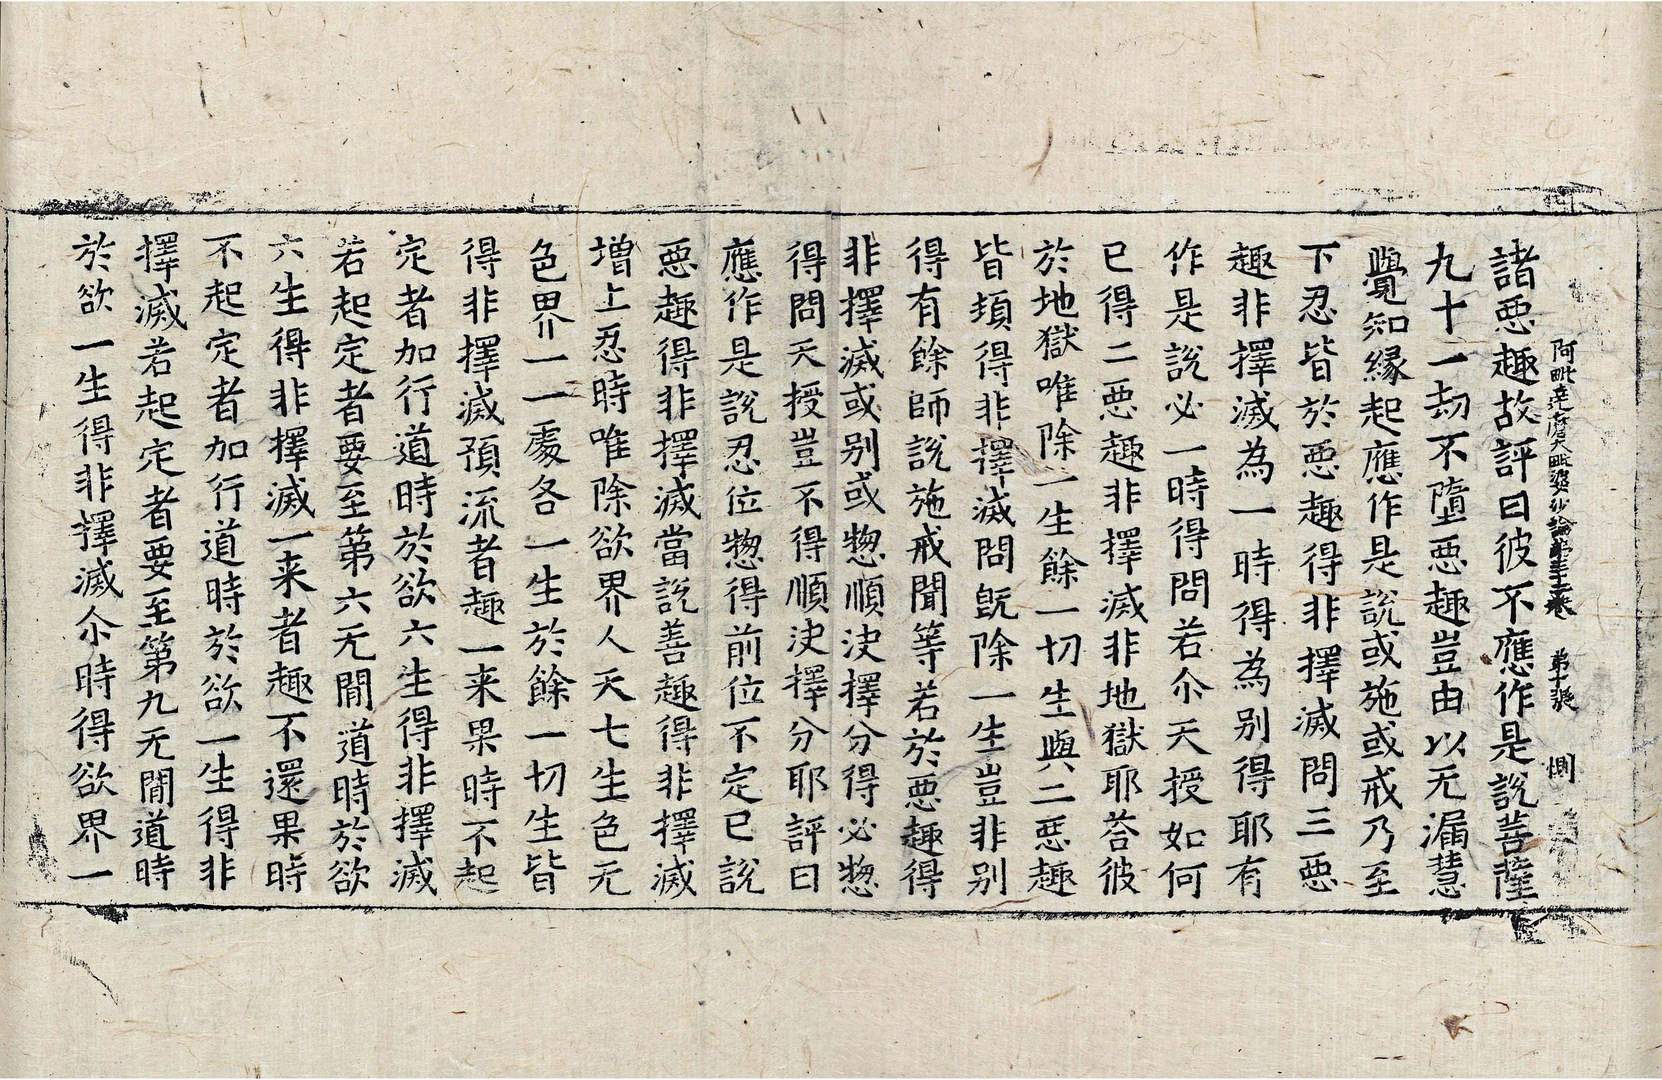 阿毗達磨大毗婆沙論第三十二卷 第十張 惻
諸惡趣故評曰彼不應作是說菩薩
九十一劫不墮惡趣豈由以无漏慧
覺知緣起應作是說或施或戒乃至
下忍皆於惡趣得非擇滅問三惡
趣非擇滅為一時得為別得耶有
作是說必一時得問若尒天授如何
已得二惡趣非擇滅非地獄耶荅彼
於地獄唯除一生餘一切生與二惡趣
皆頓得非擇滅問旣除一生豈非別
得有餘師說施戒聞等若於惡趣得
非擇滅或別或惣順決擇分得必惣
得問天授豈不得順決擇分耶評曰
應作是說忍位惣得前位不定已說
惡趣得非擇滅當說善趣得非擇滅
增上忍時唯除欲界人天七生色无
色界一一處各一生於餘一切生皆
得非擇滅預流者趣一来果時不起
定者加行道時於欲六生得非擇滅
若起定者要至第六无閒道時於欲
六生得非擇滅一来者趣不還果時
不起定者加行道時於欲一生得非
擇滅若起定者要至第九无閒道時
於欲一生得非擇滅尒時得欲界一